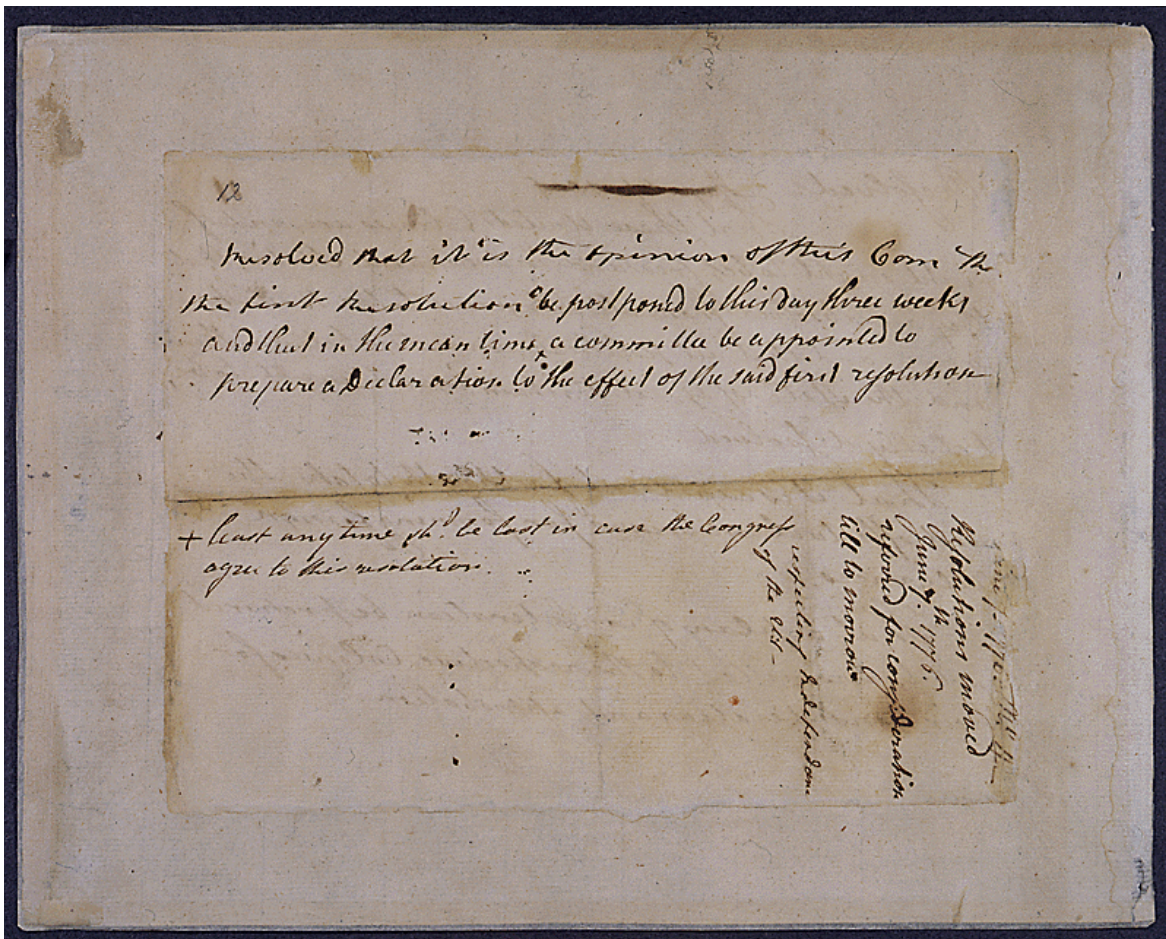 12
Resolved that it is the opinion of this Com. Th
the first Resolution be postponed to this day three weeks
and that in the mean time + a committee be appointed to
prepare a Declaration to the effect of the said first resolution
+ least any time shd. be lost in case the Congress
agree to this resolution.
Resolutions moved
June 7th. 1776.
referred for consideration
till to morrow
respecting Independanc
of the